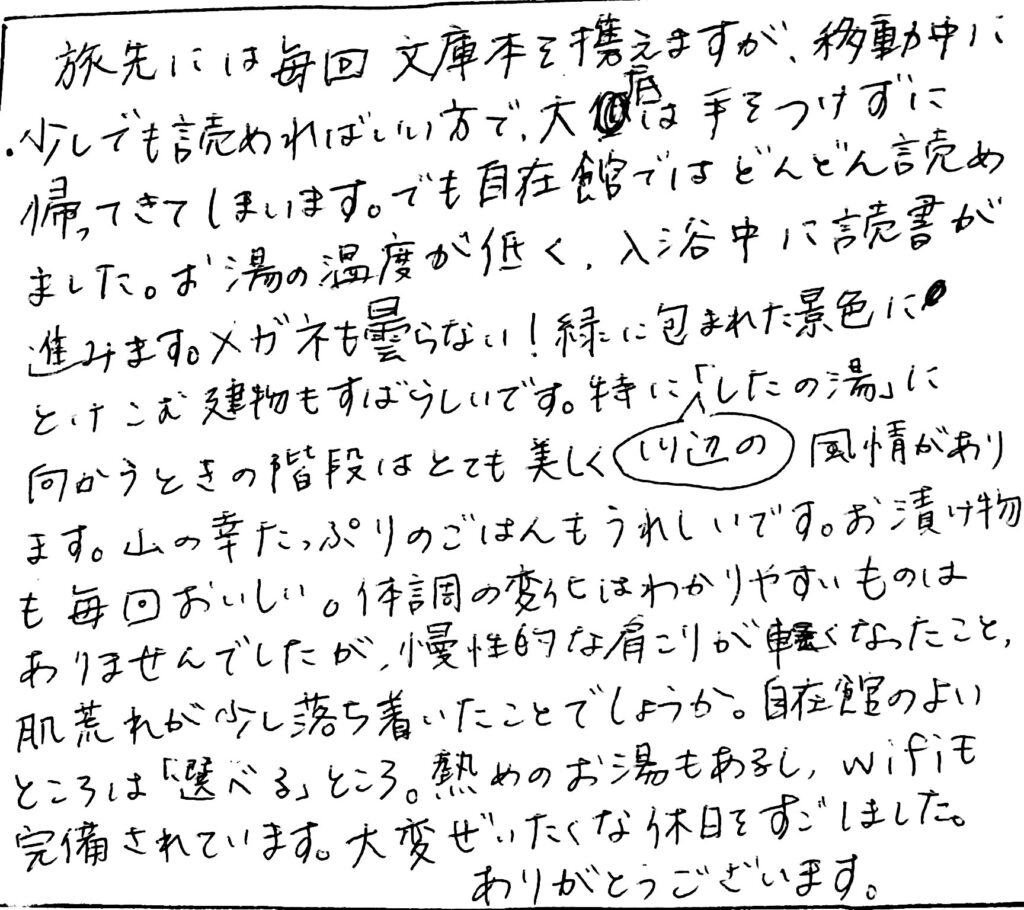 旅先には毎回文庫本を携えますが、移動中に
少しでも読めればいい方で、大底は手をつけずに
帰ってきてしまいます。でも自在館ではどんどん読め
ました。お湯の温度が低く、入浴中に読書が
進みます。メガネも曇らない!緑に包まれた景色に
とけこむ建物もすばらしいです。特に「したの湯」に
向かうときの階段はとても美しく川辺の風情があり
ます。山の幸たっぷりのごはんもうれしいです。お漬け物
も毎回おいしい。体調の変化はわかりやすいものは
ありませんでしたが、慢性的な肩こりが軽くなったこと、
肌荒れが少し落ち着いたことでしょうか。自在館のよい
ところは「選べる」ところ。熱めのお湯もあるし、wifiも
完備されています。大変ぜいたくな休日をすごしました。
ありがとうございます。